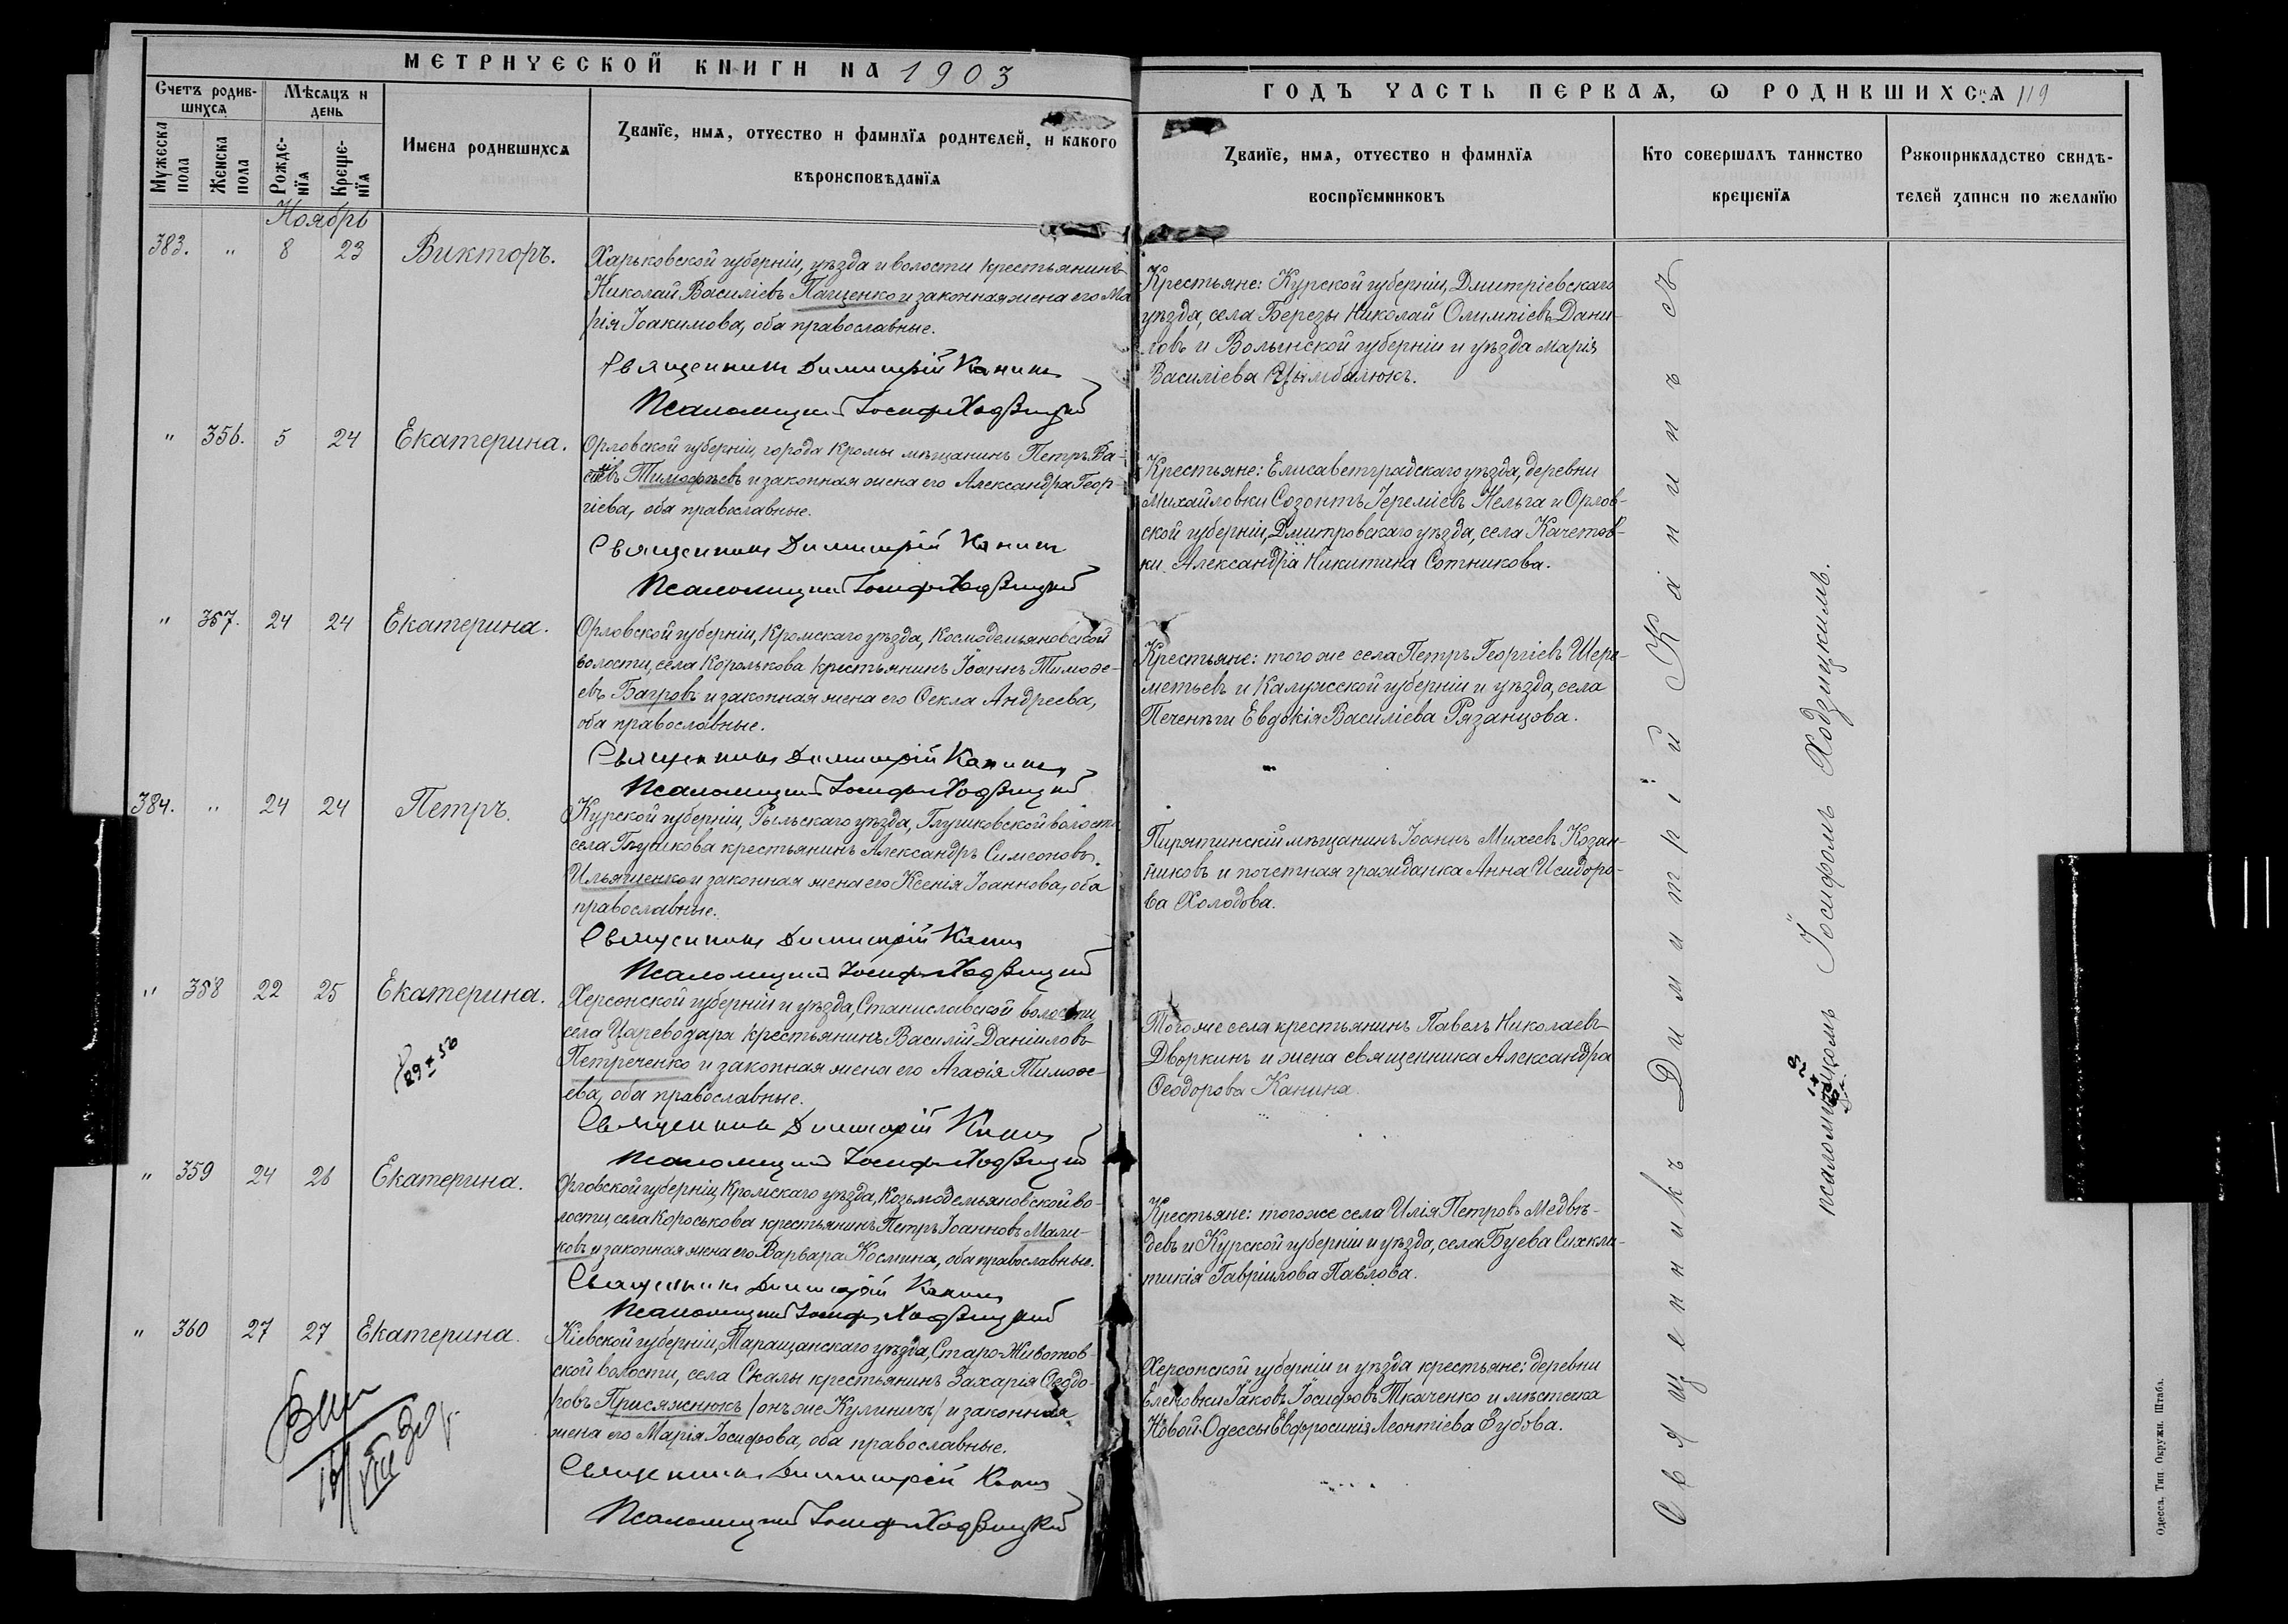 МЕТРИЧЕСКОЙ КНИГИ НА 1903
Счетъ родив-
шихся
Мѣсяцъ и
день
Мужеска
пола
Женска
пола
Рожде-
нїя
Креще-
нїя
Имена родившихся
Званїе, имя, отчество и фамилїя родителей, и какого
вѣроисповѣданїя
Ноябрь
383. " 8 23 Викторъ.
Харьковской губерніи, уѣзда и волости крестьянинъ
Николай Василіевъ Пащенко и законная жена его Ма
рія Іоакимова, оба православные.
Священникъ Димитрій Канинъ
Псаломщикъ Іосифъ Ходзицкій
" 356. 5 24 Екатерина.
Орловской губерніи, города Кромы мѣщанинъ Петръ Ва-
Тимофѣевъ и законная жена его Александра Геор-
гіева, оба православные.
Священникъ Димитрій Канинъ
Псаломщикъ Іосифъ Ходзицкій
" 357. 24 24 Екатерина.
Орловской губерніи, Кромскаго уѣзда, Космодемьяновской
волости, села Королькова крестьянинъ Іоаннъ Тимоѳе-
евъ Багровъ и законная жена его Ѳекла Андреева,
оба православные.
Священникъ Димитрій Канинъ
Псаломщикъ Іосифъ Ходзицкій
384. " 24 24 Петръ.
Курской губерніи, Рыльскаго уѣзда, Глушковской волости
села Глушкова крестьянинъ Александръ Симеоновъ
Ильяшенко и законная жена его Ксенія Іоаннова, оба
православные.
Священникъ Димитрій Канинъ
Псаломщикъ Іосифъ Ходзицкій
" 358 22 25 Екатерина.
Херсонской губерніи и уѣзда, Станиславской волости
села Цареводара крестьянинъ Василій Данииловъ
Петреченко и законная жена его Агаѳія Тимоѳе-
ева, оба православные.
Священникъ Димитрій Канинъ
Псаломщикъ Іосифъ Ходзицкій
" 359 24 26 Екатерина.
Орловской губерніи, Кромскаго уѣзда, Козьмодемьяновской во-
лости, села Короськова крестьянинъ Петръ Іоанновъ Мали-
ковъ и законная жена его Варвара Космина, оба православные.
Священникъ Димитрій Канинъ
Псаломщикъ Іосифъ Ходзицкій
" 360 27 27 Екатерина.
Кіевской губерніи, Таращанскаго уѣзда, Старо-Животов-
ской волости, села Скалы крестьянинъ Захарія Ѳеодо-
ровъ Присяжнюкъ /онъ же Кулиничъ/ и законная
жена его Марія Іосифова, оба православные.
Священникъ Димитрій Канинъ
Псаломщикъ Іосифъ Ходзицкій
ГОДЪ ЧАСТЬ ПЕРВАЯ, Ѡ РОДИВШИХСЯ 119
Званїе, имя, отчество и фамилїя
воспрїемниковъ
Кто совершалъ таинство
крещенїя
Рукоприкладство свидѣ-
телей записи по желанїю
Крестьяне: Курской губерніи, Дмитріевскаго
уѣзда, села Березы Николай Олимпіевъ Дани-
ловъ и Волынской губерніи и уѣзда Марія
Василіева Цымбалюкъ.
Крестьяне: Елисаветградскаго уѣзда, деревни
Михайловки Созонтъ Іереміевъ Нельга и Орлов-
ской губерніи, Дмитровскаго уѣзда, села Качетов-
ки Александра Никитина Сотникова.
Крестьяне: того же села Петръ Георгіевъ Шере-
метьевъ и Калужской губерніи и уѣзда, села
Печенѣги Евдокія Василіева Рязанцова.
Пирятинскій мѣщанинъ Іоаннъ Михеевъ Козан-
никовъ и почетная гражданка Анна Исидоро-
ва Холодова.
Того же села крестьянинъ Павелъ Николаевъ
Дворкинъ и жена священника Александра
Ѳеодорова Канина.
Крестьяне: того же села Илія Петровъ Медвѣ-
девъ и Курской губерніи и уѣзда, села Буева Синкли-
тикія Гавріилова Павлова.
Херсонской губерніи и уѣзда крестьяне: деревни
Еленовки Іаковъ Іосифовъ Ткаченко и мѣстечка
Новой-Одессы Евфросинія Леонтіева Зубова.
Священникъ Димитрій Канинъ съ
псаломщикомъ Іосифомъ Ходзицкимъ.
Одесса, Тип. Окружн. Штаба.